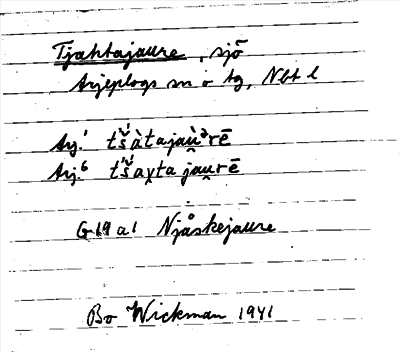 Tjahtajaure, sjö
Arjeplogs sn o tg, Nbt l
Arj.¹ tš́àtajau̯ᵊrē
Arj.⁶ tš́aχta jau̯rē
G 19 a 1 Njåskejaure
Bo Wickman 1941